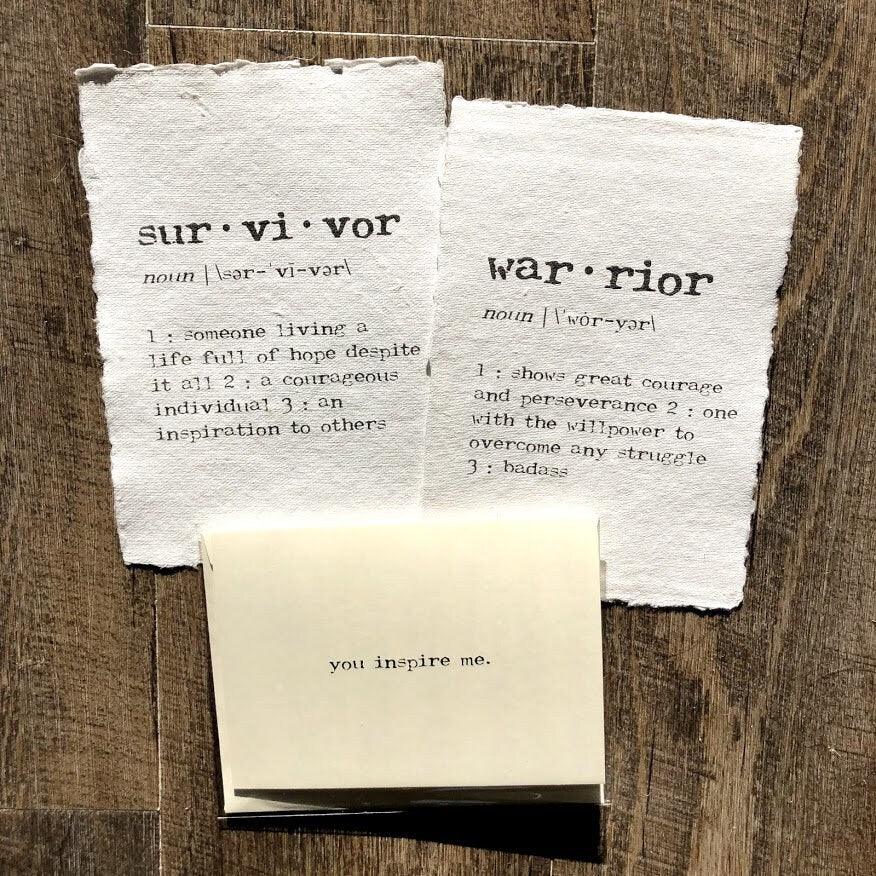 sur·vi·vor
noun | \sər-ˈvī-vər\
1 : someone living a
life full of hope despite
it all 2 : a courageous
individual 3 : an
inspiration to others
war·rior
noun | \ˈwȯr-yər\
1 : shows great courage
and perseverance 2 : one
with the willpower to
overcome any struggle
3 : badass
you inspire me.